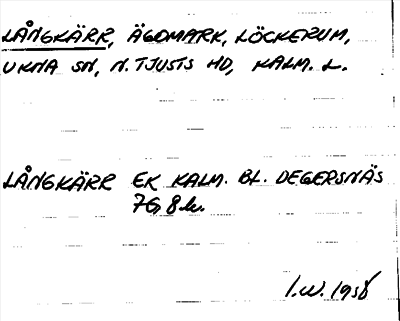 LÅNGKÄRR, ÄGOMARK, LÖCKERUM,
UKNA SN, N. TJUSTS HD, KALM. L.
LÅNGKÄRR EK KALM. BL. DEGERSNÄS
7G 8h.
I.W. 1958